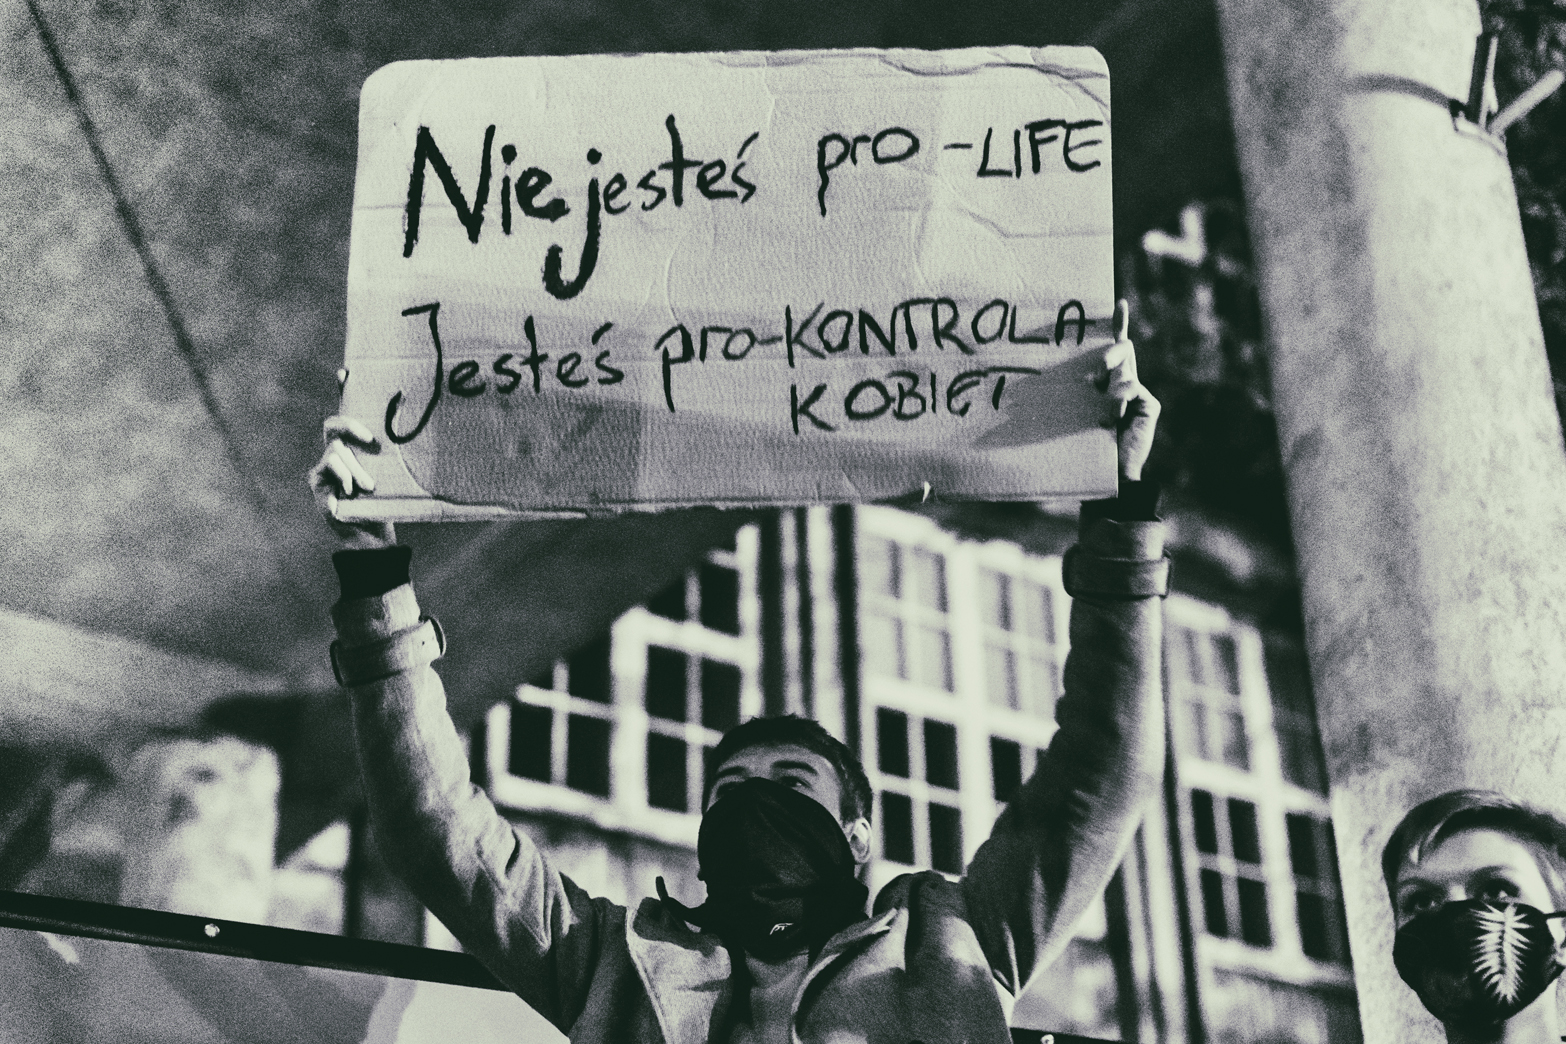 Nie jesteś pro-LIFE
Jesteś pro-KONTROLA
KOBIET